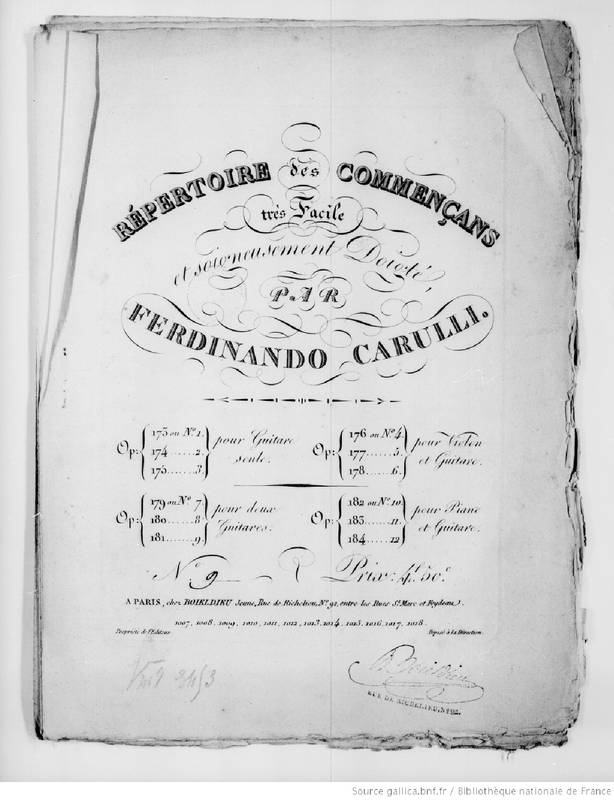 RÉPERTOIRE des COMMENÇANS
très Facile
et soigneusement Doigté,
PAR
FERDINANDO CARULLI.
Op: 173 ou Nº 1. pour Guitare seule.
174......2.
175......3.
Op: 176 ou Nº 4. pour Violon et Guitare.
177......5.
178......6.
Op: 179 ou Nº 7. pour deux Guitares.
180......8.
181......9.
Op: 182 ou Nº 10. pour Piano et Guitare.
183......11.
184......12.
Nº 9 Prix: 4f. 50c
A PARIS, chez BOIELDIEU Jeune, Rue de Richelieu, Nº 92, entre les Rues St. Marc et Feydeau.
1007, 1008, 1009, 1010, 1011, 1012, 1013, 1014, 1015, 1016, 1017, 1018.
Propriété de l'Editeur Déposé à la Direction.
RUE DE RICHELIEU, Nº 92.
Source gallica.bnf.fr / Bibliothèque nationale de France